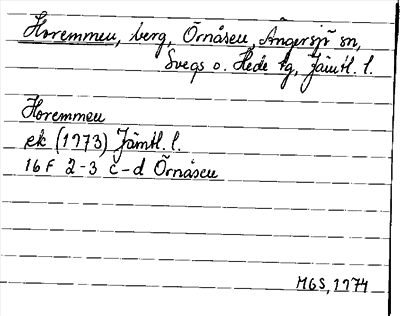 Horemmen, berg, Örnåsen, Ängersjö sn,
Svegs o. Hede tg, Jämtl. l.
Horemmen
ek (1973) Jämtl. l.
16 F 2-3 c-d Örnåsen
MGS, 1974